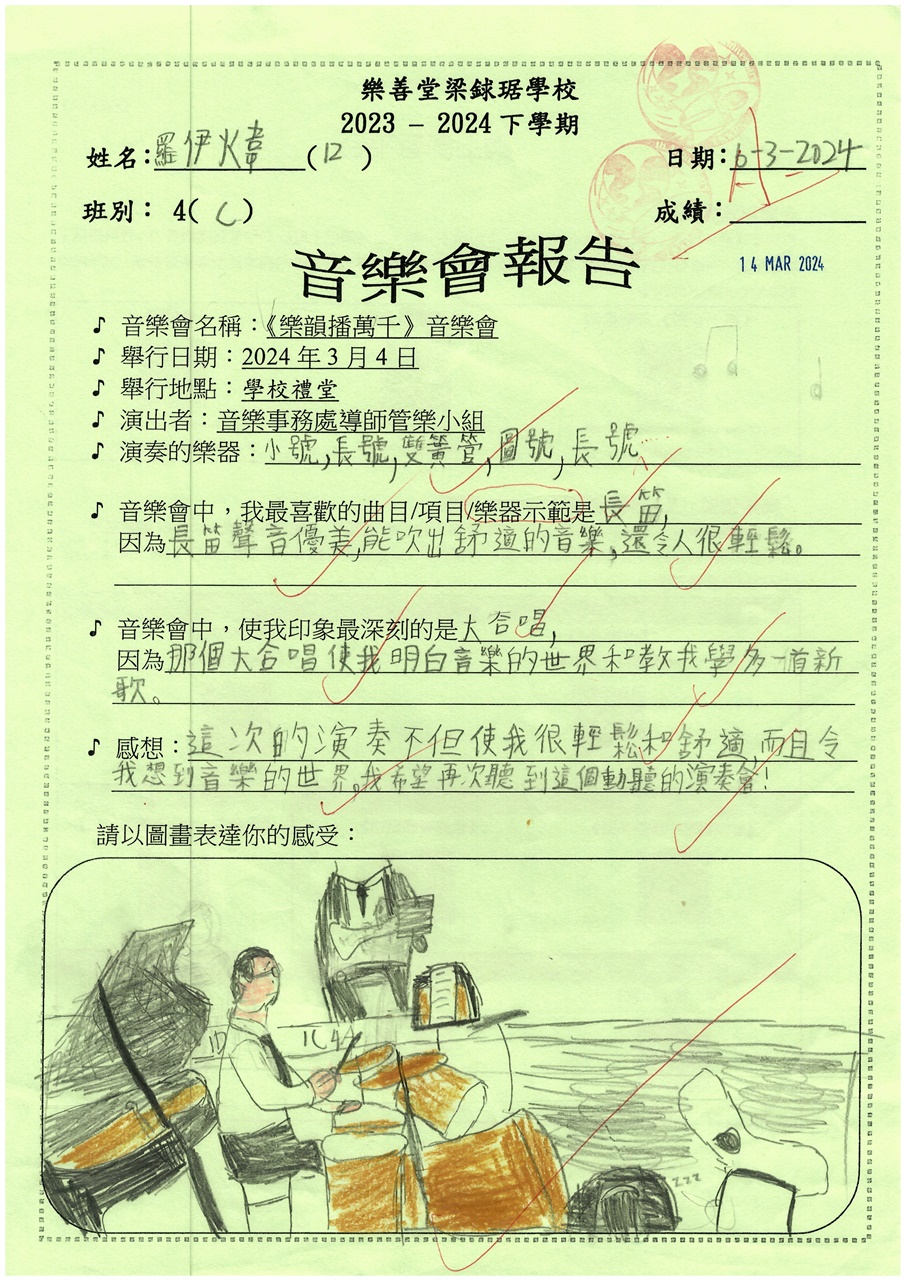 樂善堂梁銶琚學校
2023 – 2024 下學期
姓名：羅伊火韋 (12)
日期：6-3-2024
A-
班別： 4( C )
成績：
音樂會報告
14 MAR 2024
♪ 音樂會名稱：《樂韻播萬千》音樂會
♪ 舉行日期：2024 年 3 月 4 日
♪ 舉行地點：學校禮堂
♪ 演出者：音樂事務處導師管樂小組
♪ 演奏的樂器：小號,長號,雙簧管,圓號,長號
♪ 音樂會中，我最喜歡的曲目/項目/樂器示範是長笛,
因為長笛聲音優美,能吹出舒適的音樂,還令人很輕鬆。
♪ 音樂會中，使我印象最深刻的是大合唱,
因為那個大合唱使我明白音樂的世界和教我學多一首新
歌。
♪ 感想：這次的演奏不但使我很輕鬆和舒適,而且令
我想到音樂的世界。我希望再次聽到這個動聽的演奏會!
請以圖畫表達你的感受：
1D
1C
4A
zzz